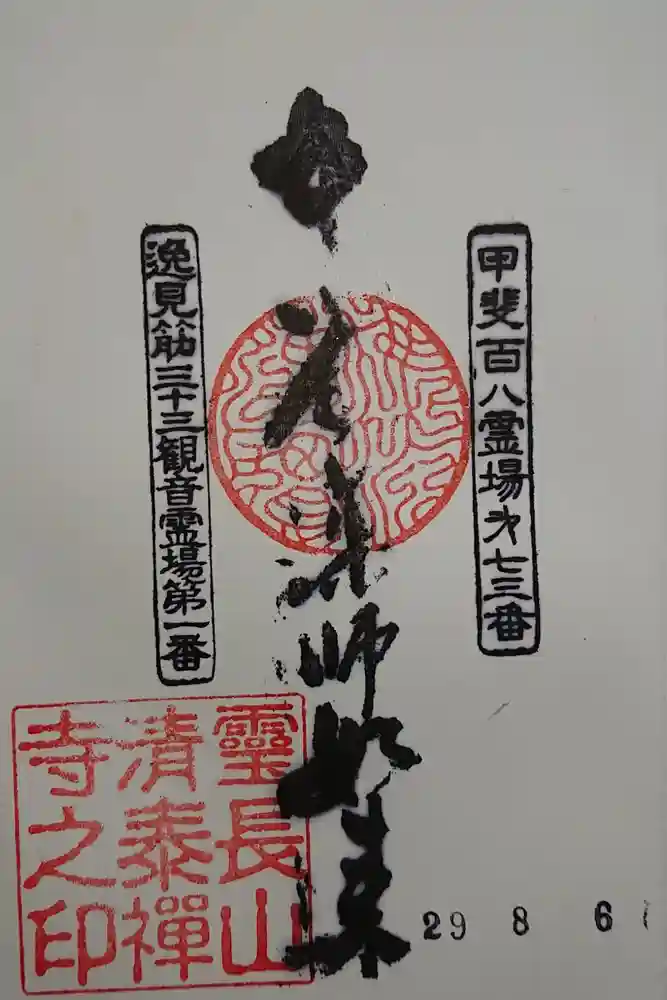 甲斐百八霊場第七三番
奉
薬師如来
逸見筋三十三観音霊場第一番
靈長山
清泰禅
寺之印
29 8 6